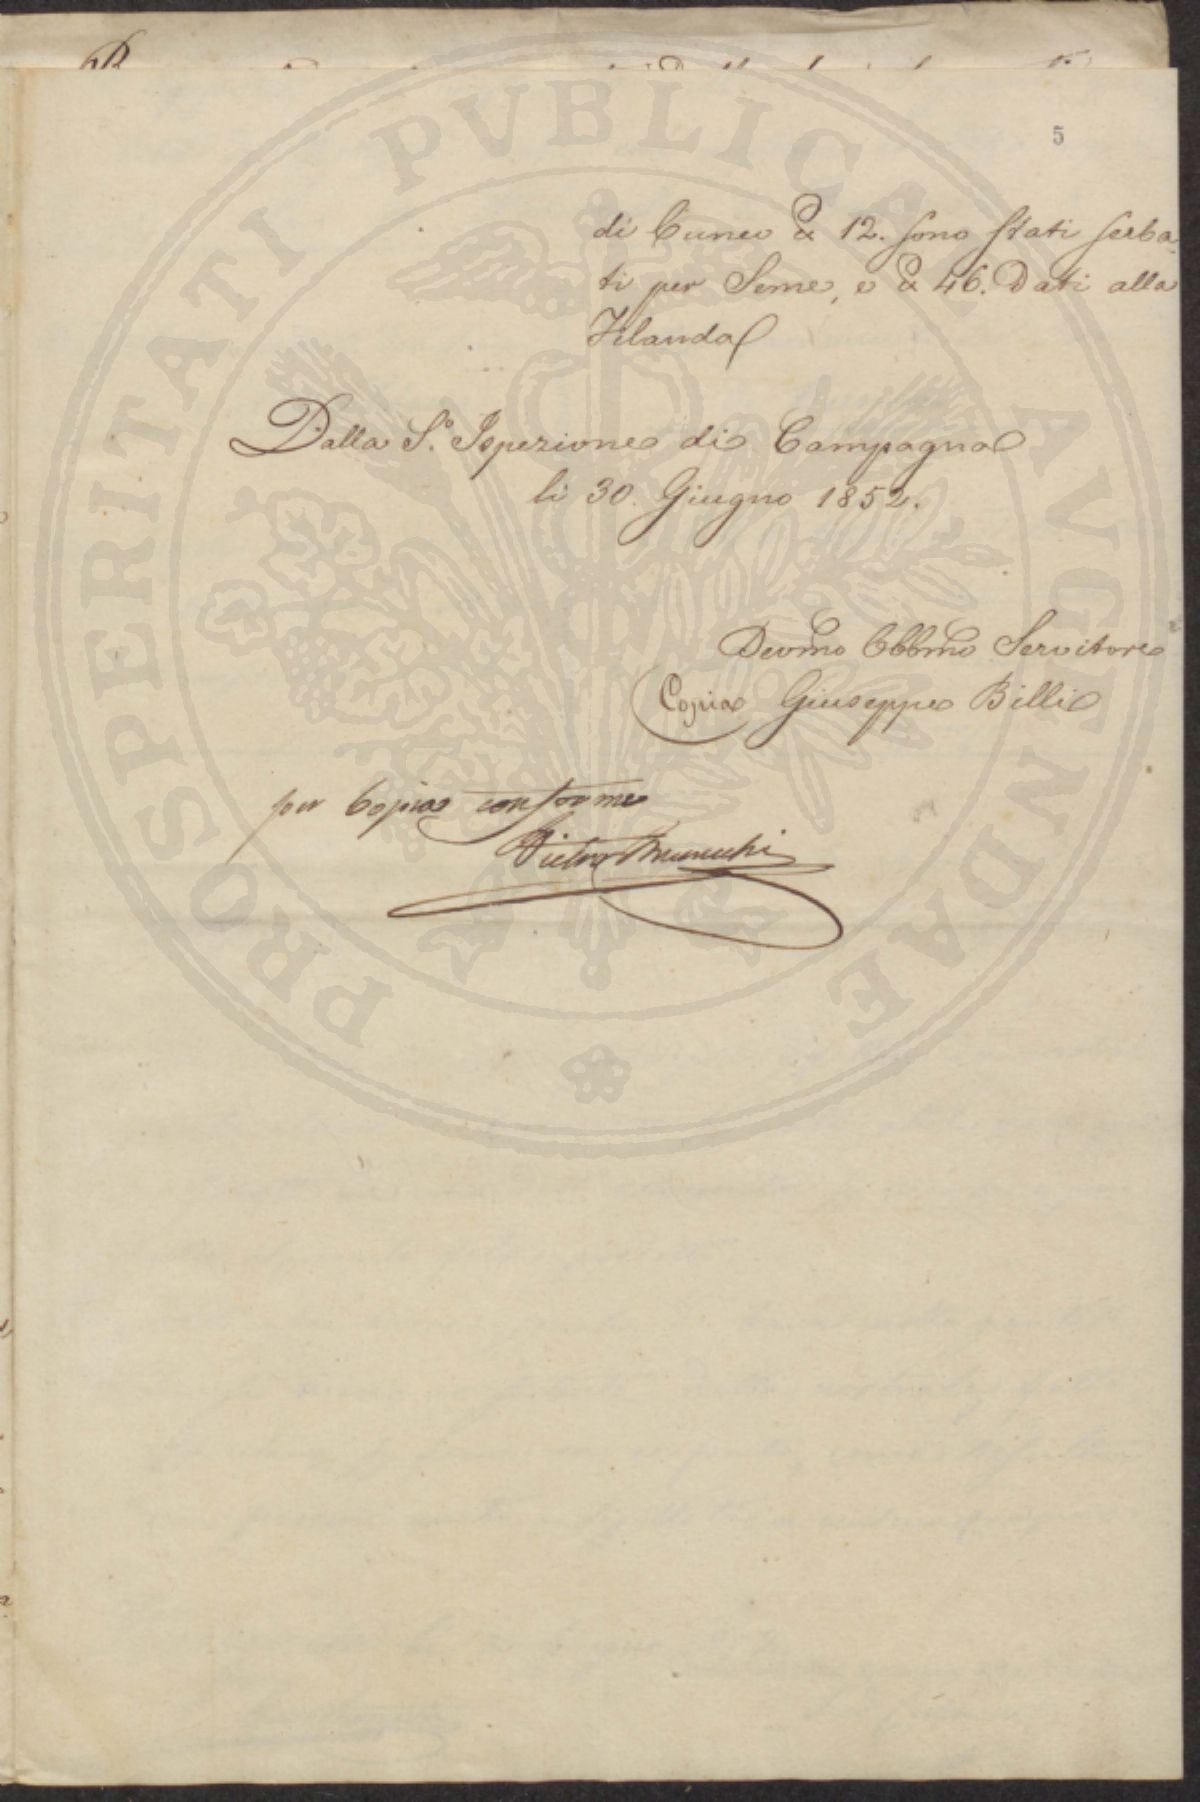 5
di Cuneo & 12. sono stati serba
ti per Seme, e & 46. Dati alla
Filanda
Dalla S.ª Ispezione di Campagna
li 30. Giugno 1852.
Devmo Obbmo Servitore
Copia Giuseppe Billi
per Copia conforme
Pietro
PROSPERITATI PVBLICAE AVGENDAE